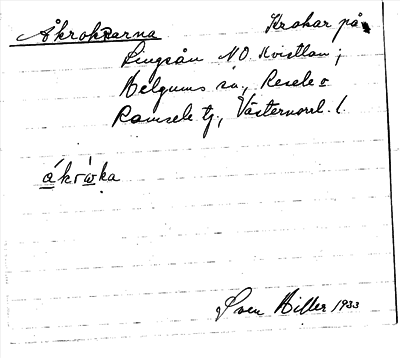 Åkrokarna Krokar på
Lungsån NO Kvistlon;
Helgums sn, Resele o
Ramsele tg, Västernorrl. l.
ákrẁka
Sven Hiller 1933